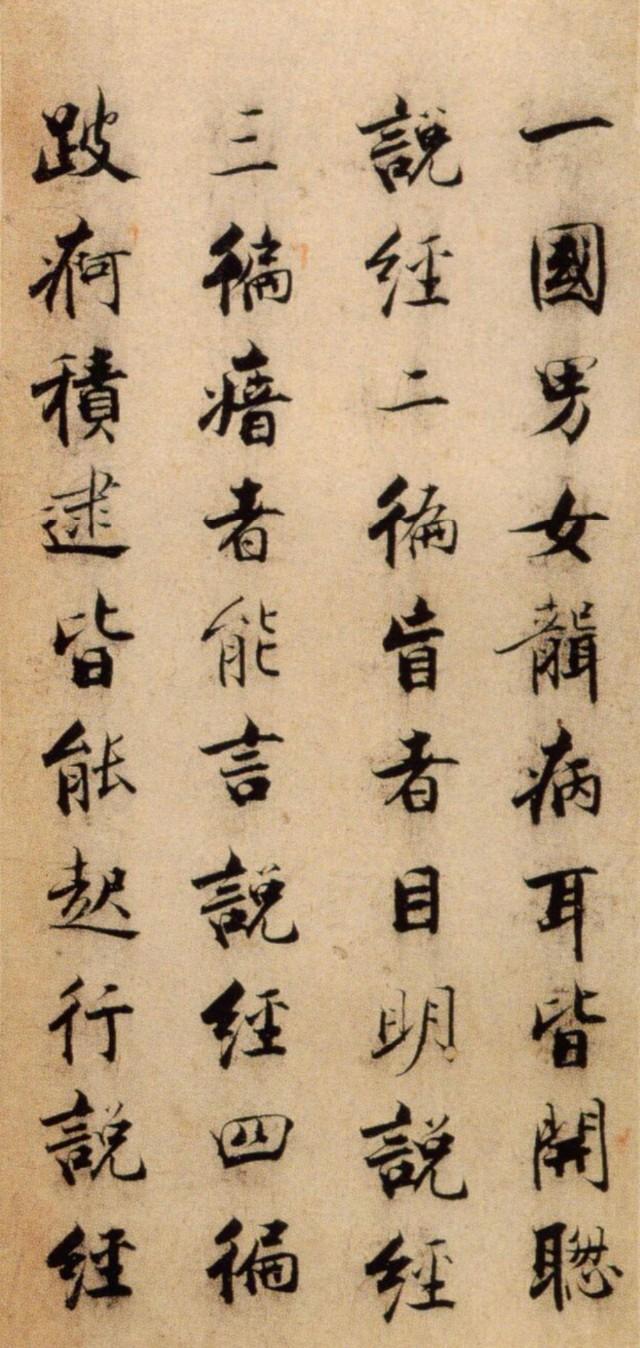 一國男女聾病耳皆開聰
說經二徧盲者目明說經
三徧瘖者能言說經四徧
跛痾積逮皆能起行說經